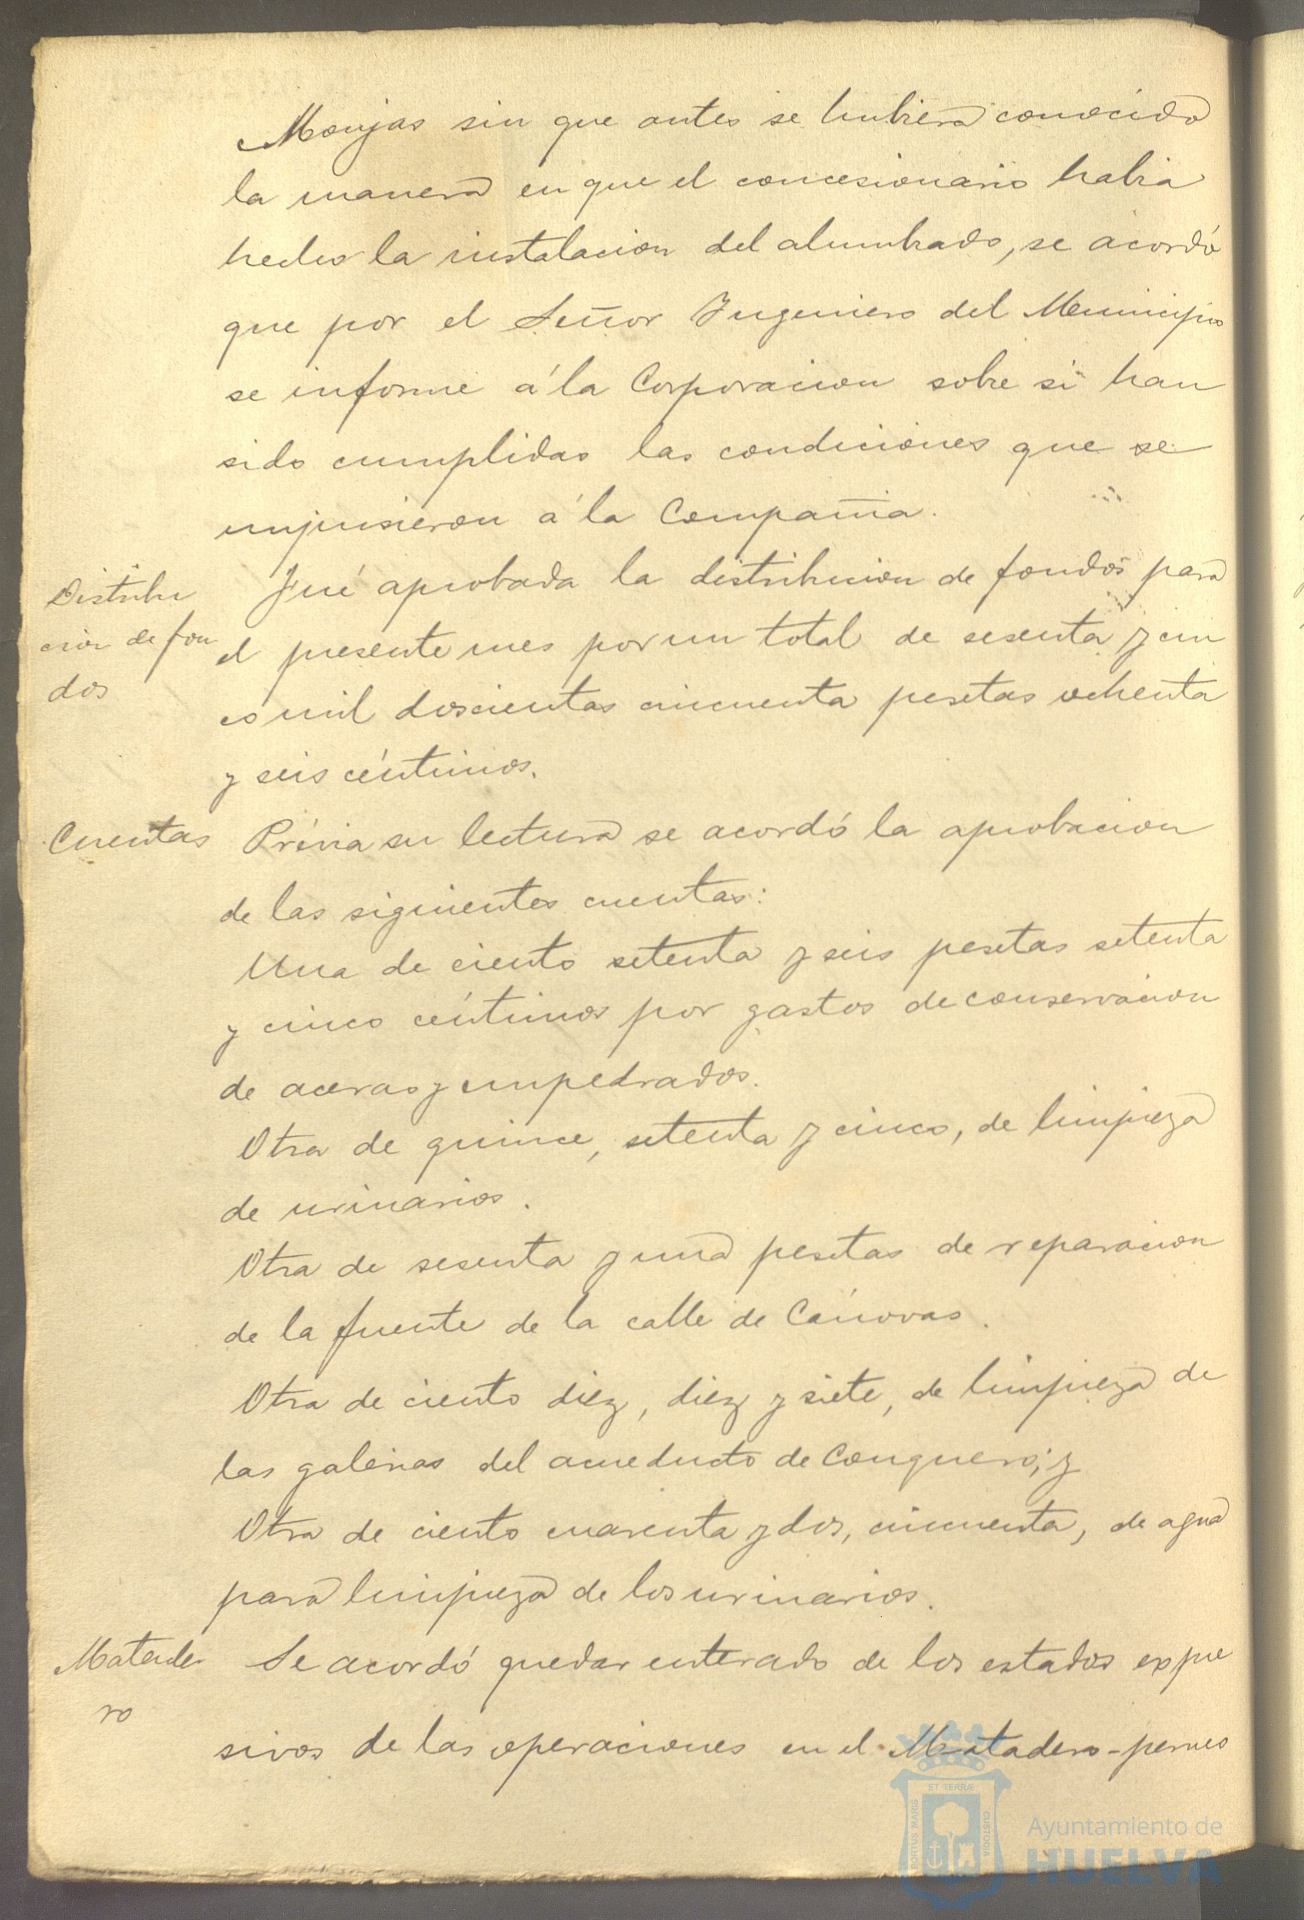 Monjas sin que antes se hubiera conocido
la manera en que el concesionario habia
hecho la instalacion del alumbrado, se acordó
que por el Señor Ingeniero del Municipio
se informe á la Corporacion sobre si han
sido cumplidas las condiciones que se
impusieron á la Compañia.
Distribu
cion de fon
dos
Fué aprobada la distribucion de fondos para
el presente mes por un total de sesenta y cin
co mil doscientas cincuenta pesetas ochenta
y seis céntimos.
Cuentas
Prévia su lectura se acordó la aprobacion
de las siguientes cuentas:
Una de ciento setenta y seis pesetas setenta
y cinco céntimos por gastos de conservacion
de aceras y empedrados.
Otra de quince, setenta y cinco, de limpieza
de urinarios.
Otra de sesenta y una pesetas de reparacion
de la fuente de la calle de Cánovas.
Otra de ciento diez, diez y siete, de limpieza de
las galerias del acueducto de Conquero; y
Otra de ciento cuarenta y dos, cincuenta, de agua
para limpieza de los urinarios.
Matade
ro
Se acordó quedar enterado de los estados expre
sivos de las operaciones en el Matadero-pernes
PORTUS MARIS
ET TERRÆ
CUSTODIA
Ayuntamiento de
HUELVA